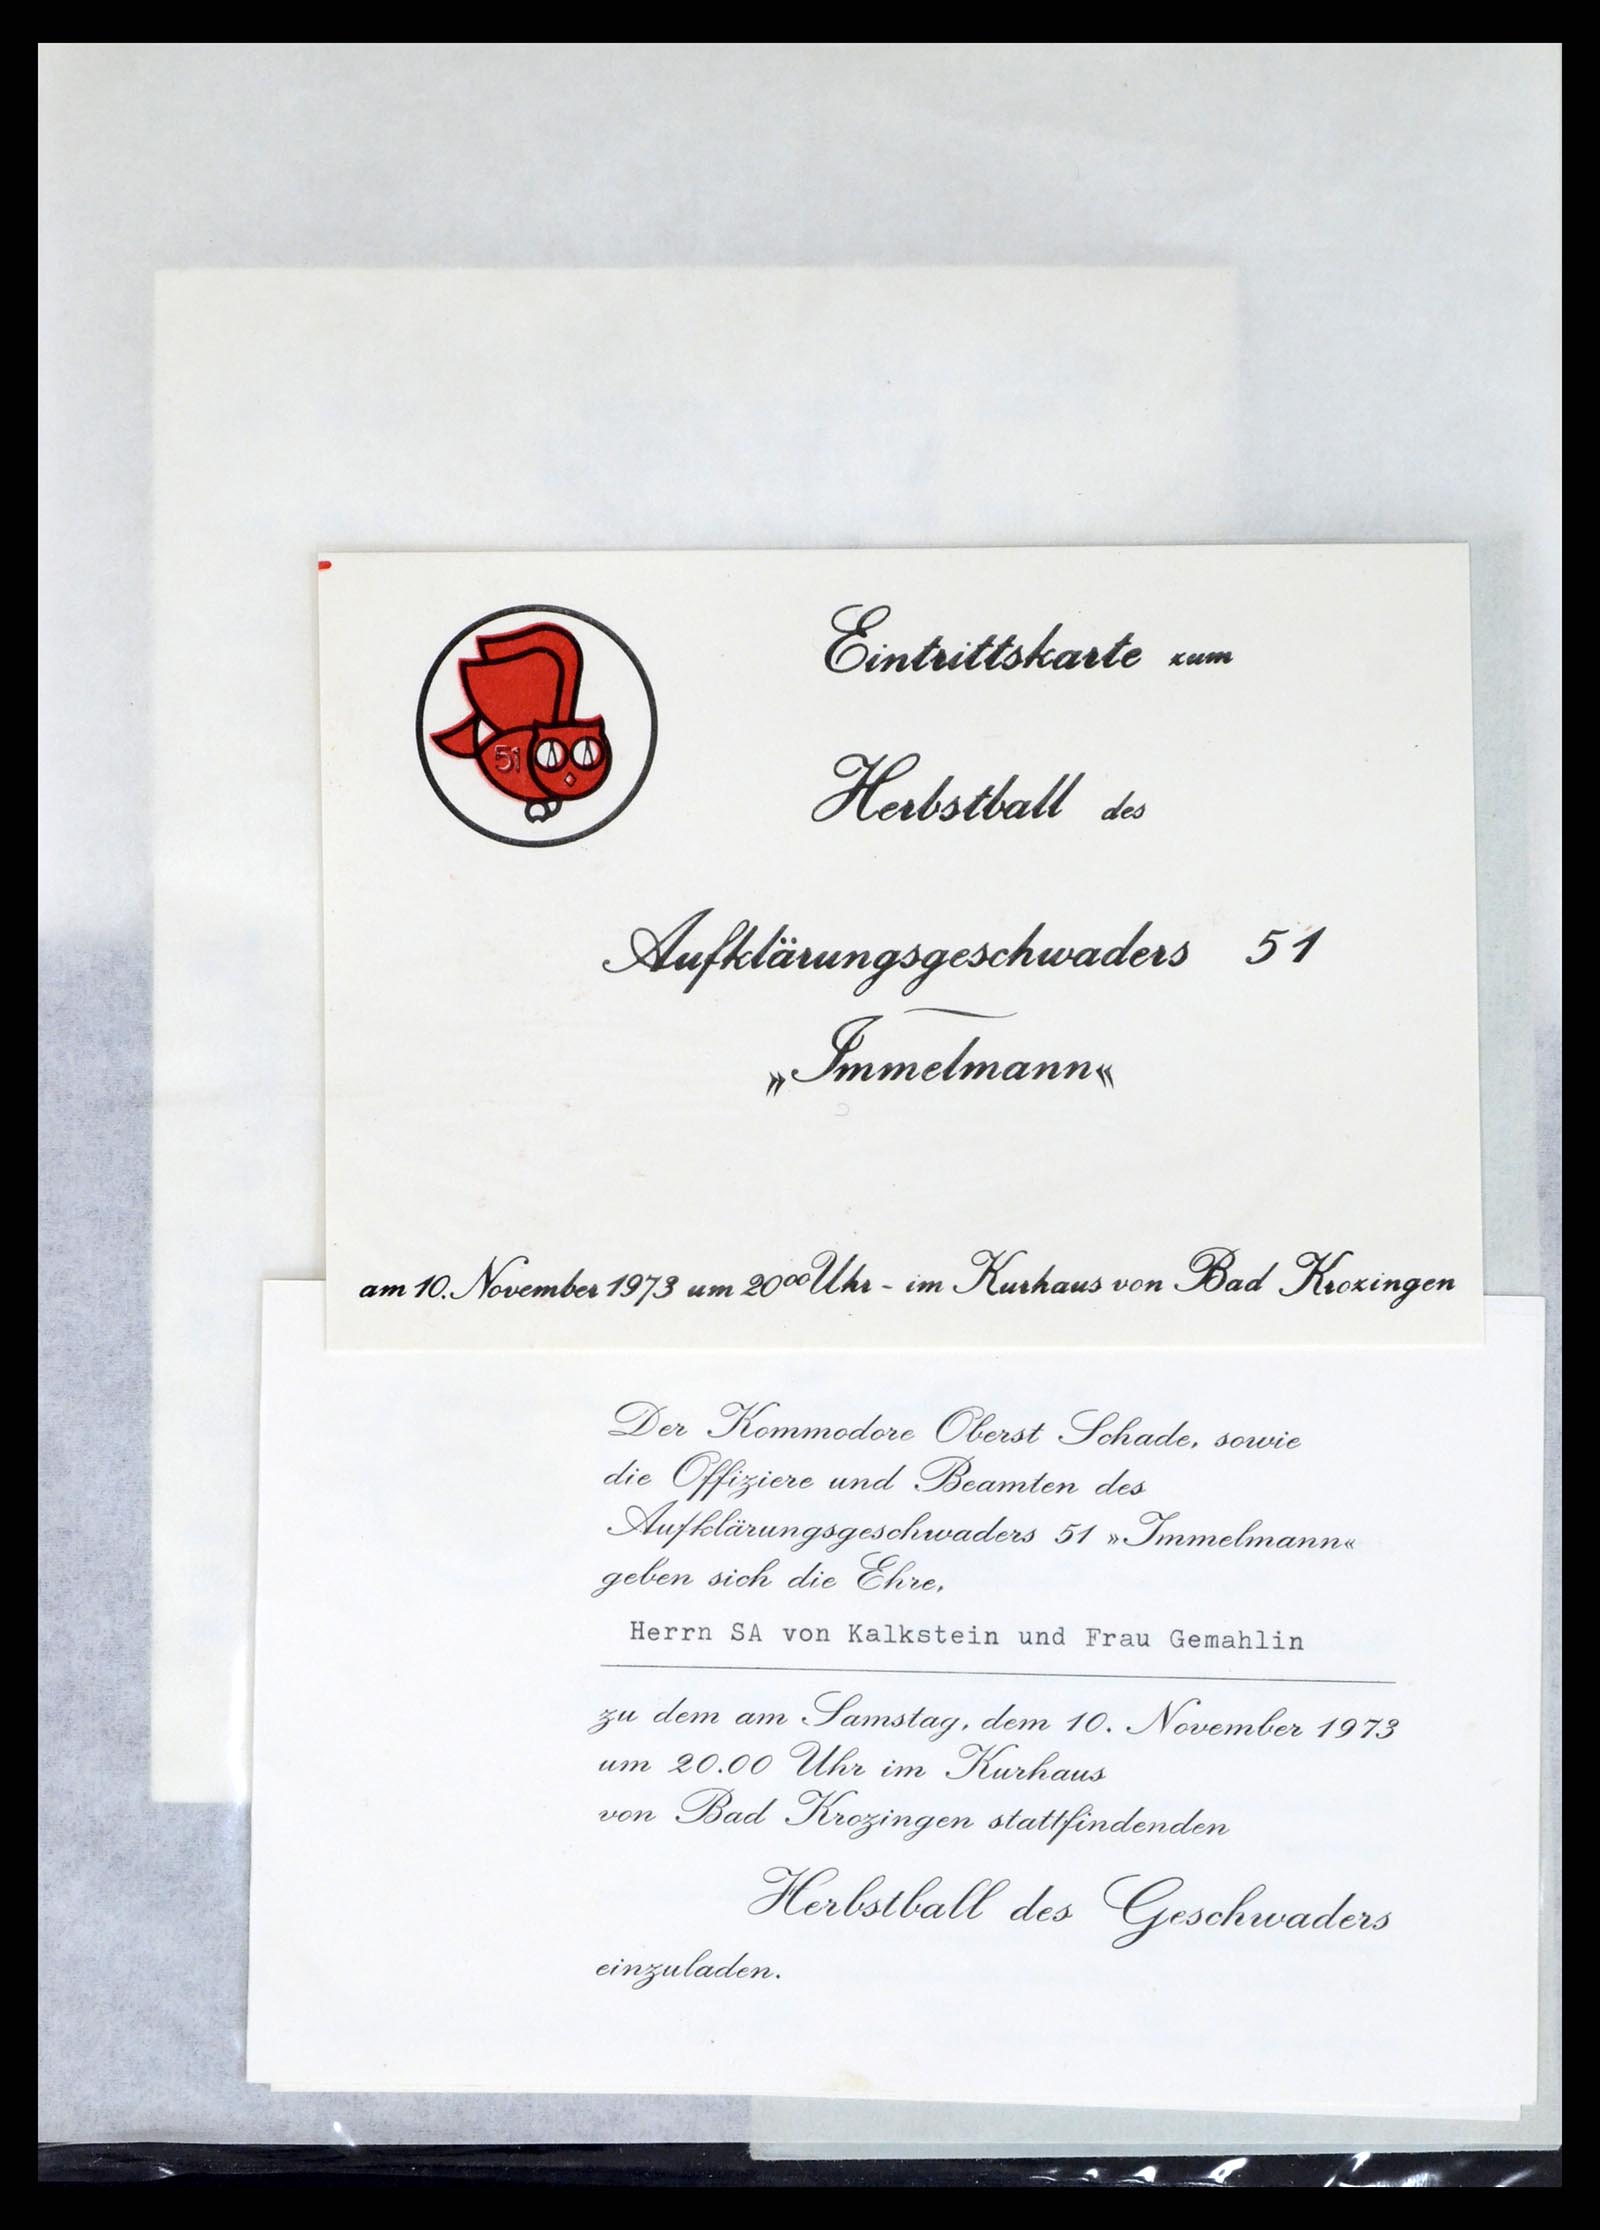 51
Eintrittskarte zum
Herbstball des
Aufklärungsgeschwaders 51
„Immelmann“
am 10. November 1973 um 20⁰⁰ Uhr - im Kurhaus von Bad Krozingen
Der Kommodore Oberst Schade, sowie
die Offiziere und Beamten des
Aufklärungsgeschwaders 51 »Immelmann«
geben sich die Ehre,
Herrn SA von Kalkstein und Frau Gemahlin
zu dem am Samstag, dem 10. November 1973
um 20.00 Uhr im Kurhaus
von Bad Krozingen stattfindenden
Herbstball des Geschwaders
einzuladen.